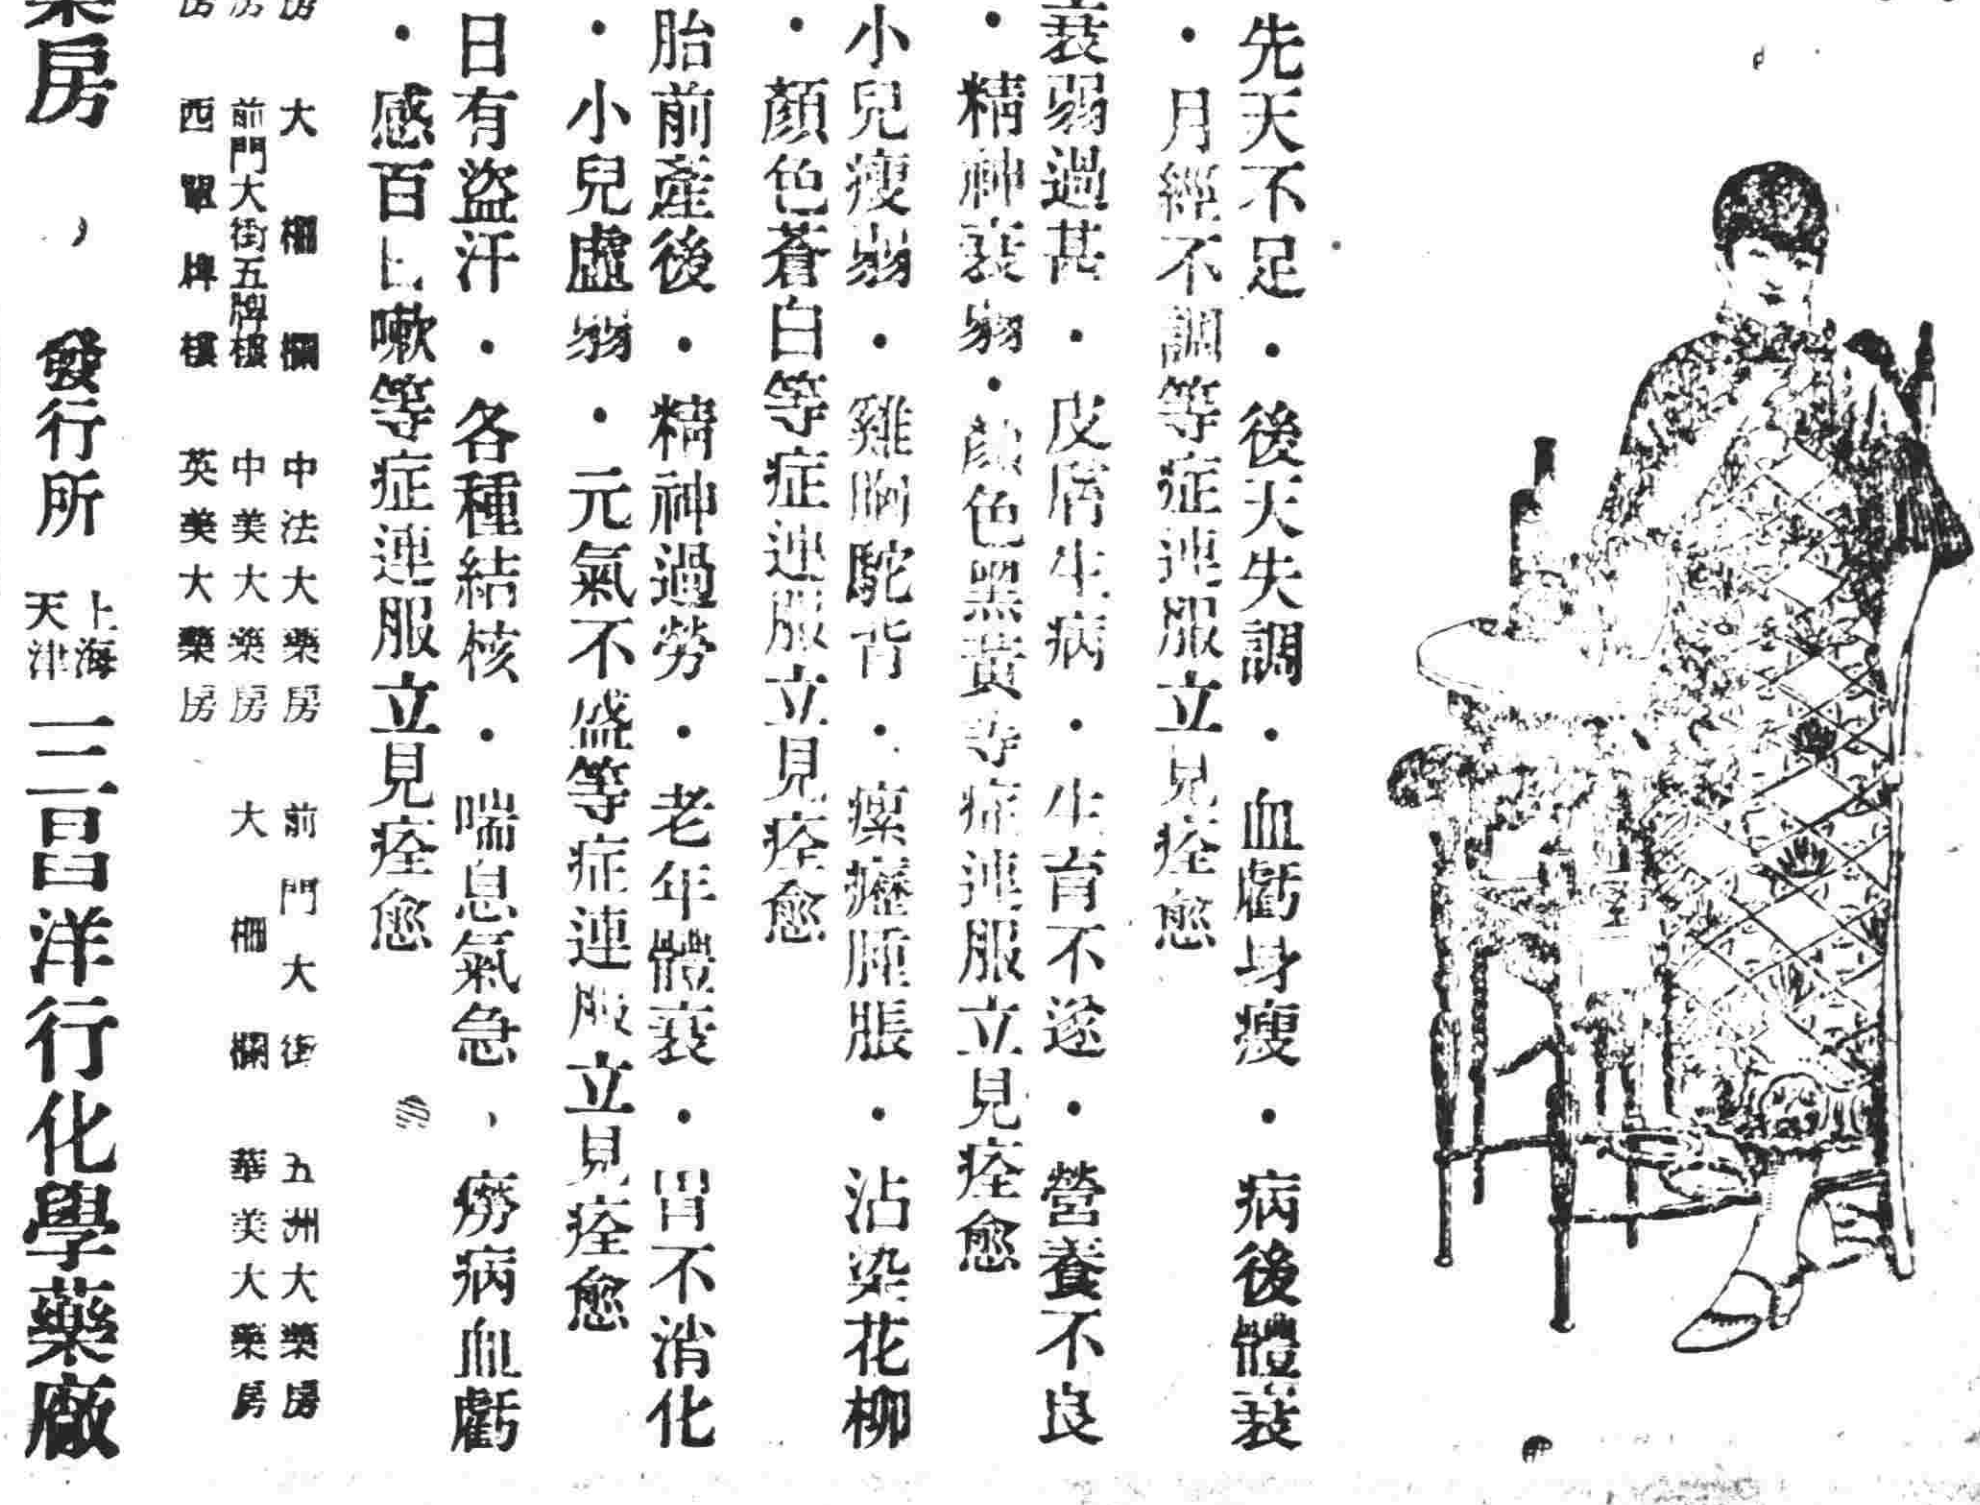 先天不足・後天失調・血虧身瘦・病後體衰
・月經不調等症連服立見痊愈
衰弱過甚・皮膚生病・生育不遂・營養不良
・精神衰弱・顏色黑黃等症連服立見痊愈
小兒瘦弱・雞胸駝背・瘰癧腫脹・沾染花柳
・顏色蒼白等症連服立見痊愈
胎前產後・精神過勞・老年體衰・胃不消化
・小兒虛弱・元氣不盛等症連服立見痊愈
日有盜汗・各種結核・喘息氣急，癆病血虧
・感百日嗽等症連服立見痊愈
房 大柵欄 中法大藥房 前門大街 五洲大藥房
房 前門大街五牌樓 中美大藥房 大柵欄 華美大藥房
房 西單牌樓 英美大藥房
藥房，發行所 上海 天津 三昌洋行化學藥廠